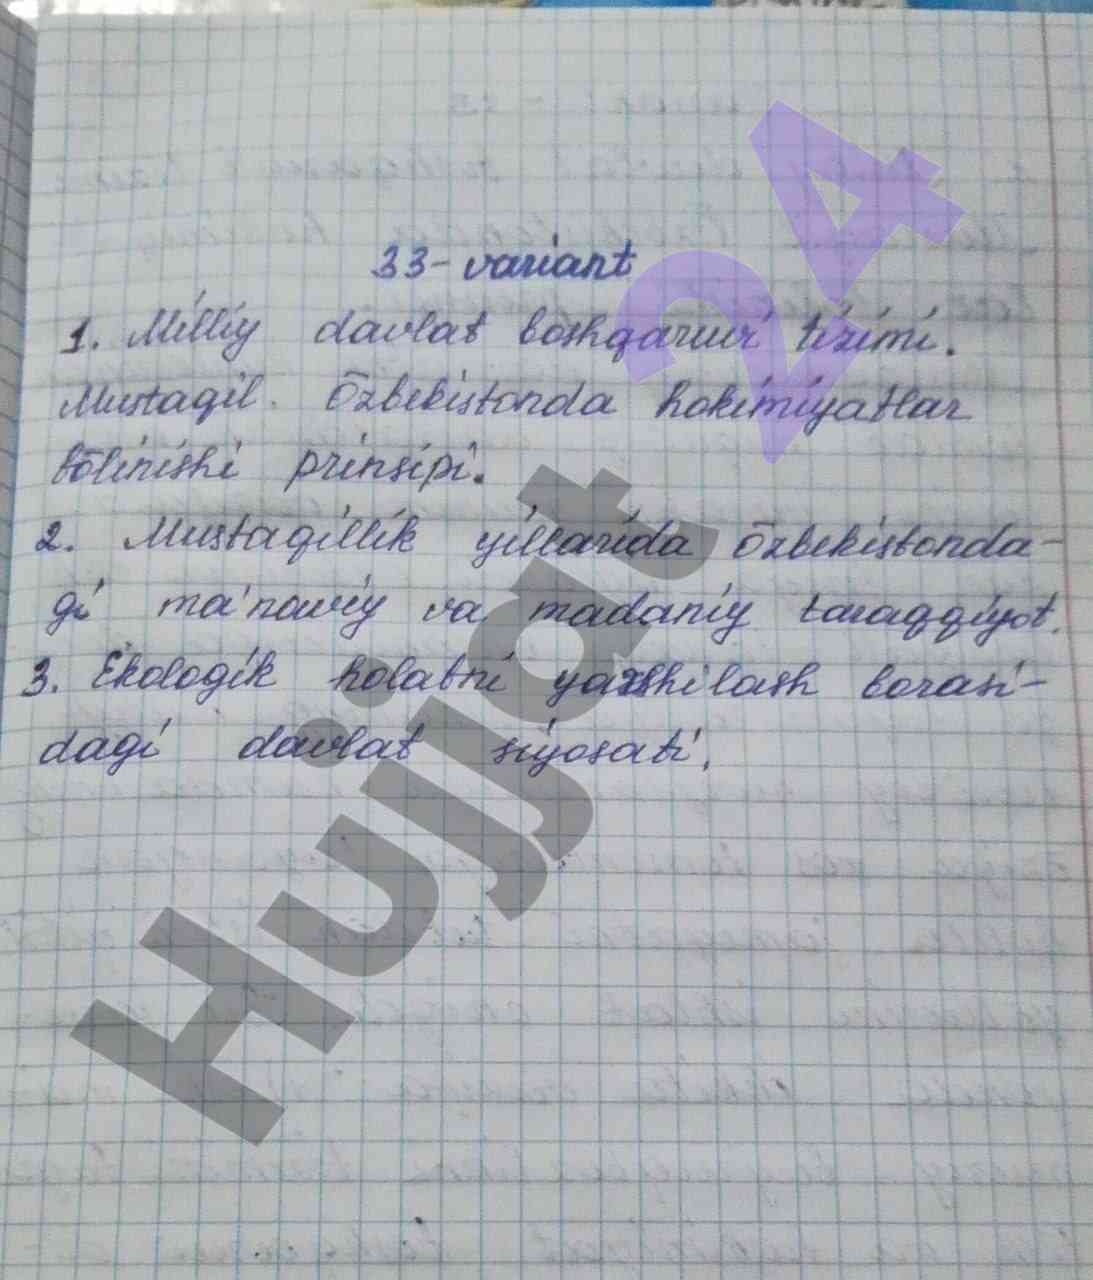 33-variant
1. Milliy davlat boshqaruvi tizimi.
Mustaqil Ōzbekistonda hokimiyatlar
bōlinishi prinsipi.
2. Mustaqillik yillarida Ōzbekistonda-
gi ma'naviy va madaniy taraqqiyot.
3. Ekologik holatni yaxshilash borasi-
dagi davlat siyosati.
Hujjat 24